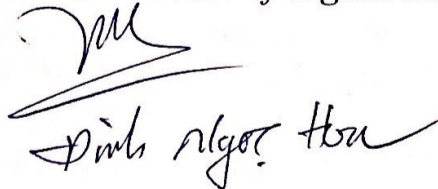 Đinh Ngọc Hoa